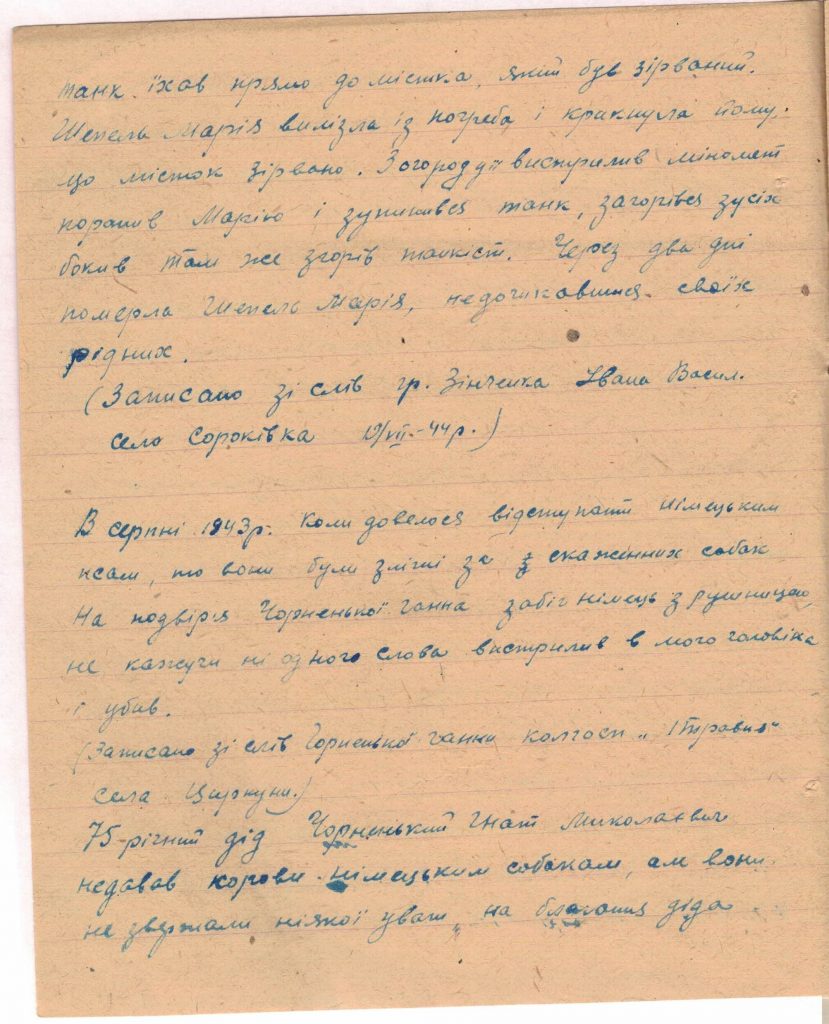 танк їхав прямо до містка, який був зірваний.
Шепель Марія вилізла із погреба і крикнула йому,
що місток зірвано. Загородді вистрилив міномет
поранив Марію і зупинився танк, загорівся зусіх
боків там же згорів танкіст. Через два дні
померла Шепель Марія, недочикавшися своїх
рідних.
(Записано зі слів гр. Зінченка Івана Васил.
село Сороківка 19/VII-44р.)
В серпні 1943р. коли довелося відступати німецьким
псам, то вони були зліші за скаженних собак
На подвірʼя Чорненької Ганна забіг німець з рушницею,
не кажучи ні одного слова вистрилив в мого чоловіка
і убив.
(Записано зі слів Чорненької Ганни колгосп „1 травня"
села Циркуни.)
75-річний дід Чорненький Гнат Миколаєвич
недавав корови німецьким собакам, але вони
не звертали ніякої уваги, на благання діда